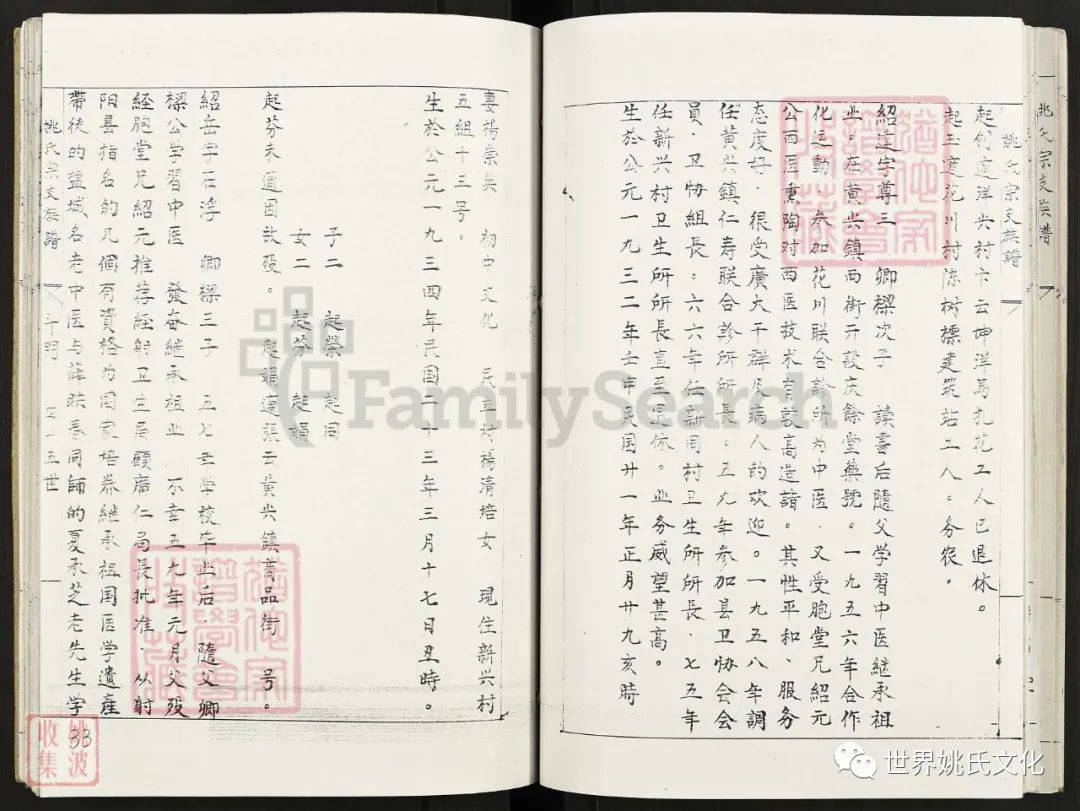 姚氏宗支族譜
姚氏宗支族譜
起創適洋兴村卞云坤洋馬扎花工人已退休。
起玉適花川村陈树標建筑站工人。务农。
紹逵字尊三 卿樑次子 讀書后隨父学習中医継承祖
业。在黄兴鎮西街开設庆餘堂藥號。一九五六年合作
化运動，参加花川联合診所为中医，又受胞堂兄紹元
公西医熏陶对西医技术有較高造詣。其性平和、服务
态度好，很受廣大干群及病人的欢迎。一九五八年調
任黄兴鎮仁寿联合診所所長。五九年参加县卫协会会
員，卫协組長；六六年任新同村卫生所所長、七五年
任新兴村卫生所所長直至退休。业务威望甚高。
生於公元一九三二年壬申民国廿一年正月廿九亥時
妻楊崇英 初中文化 永立村楊清培女 現住新兴村
五組十三号。
生於公元一九三四年民国二十三年三月十七日丑時。
子二 起榮 起同
女二 起芬 起娟
起芬未適因故歿。起娟適張云黄兴鎮商品街 号。
紹岳字石浮 卿樑三子 五七年学校毕业后，隨父卿
樑公学習中医 發奋継承祖业 不幸五九年元月父歿
経胞堂兄紹元推荐経射卫生局顧廣仁局長批准、从射
阳县指名的几個有資格为国家培养継承祖国医学遺產
帶徒的盐城名老中医与薛映春同師的夏承芝老先生学
姚氏宗支族譜
五世
姚波
收集
33
FamilySearch
世界姚氏文化